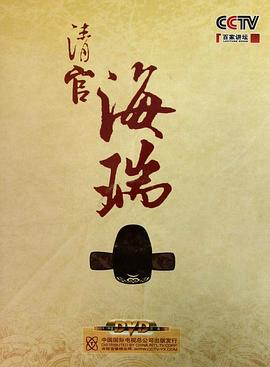 CCTV
百家讲坛
LECTURE ROOM
清官
海瑞
DVD
中国国际电视总公司出版发行
DISTRIBUTED BY CHINA INT'L TV CORP